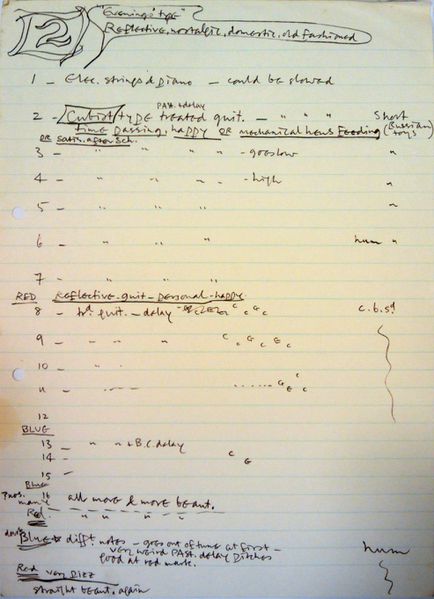 2 "Evenings" type
Reflective, nostalgic, domestic, old fashioned
1 - Elec. strings & piano - could be slowed
2 - Cubist type treated guit. - " " " Short
PAST. & delay
time passing, happy OR mechanical hens feeding (Russian toys)
OR
3 - " " " - goes low "
4 - " " " - high "
5 - " " " "
6 - " " " hum "
7 - " " "
RED Reflective - guit - personal - happy
8 - guit. - delay C G C
9 - " " C G C G C
10 - " "
11 - C G C
12
BLUE
13 - " " + B.C. delay
14 - C G
15 -
Blue
16 all more & more beaut.
Red " " " "
Blue difft. notes - goes out of tune at first -
very weird PAST. delay pitches
good at red mark. hum
Red very
straight beaut. again